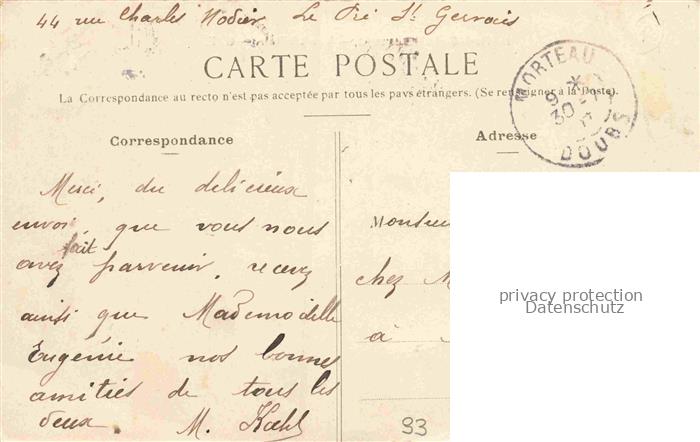 44 rue Charles Nodier, Le Pré St Gervais
CARTE POSTALE
La Correspondance au recto n'est pas acceptée par tous les pays étrangers. (Se renseigner à la Poste).
MORTEAU
9
30-11
DOUBS
Correspondance
Merci, du délicieux
envoi, que vous nous
avez fait parvenir, recevez
ainsi que Mademoiselle
Eugénie nos bonnes
amitiés de tous les
deux. M. Koehl
Adresse
Monsieur
chez M
à
93
privacy protection
Datenschutz